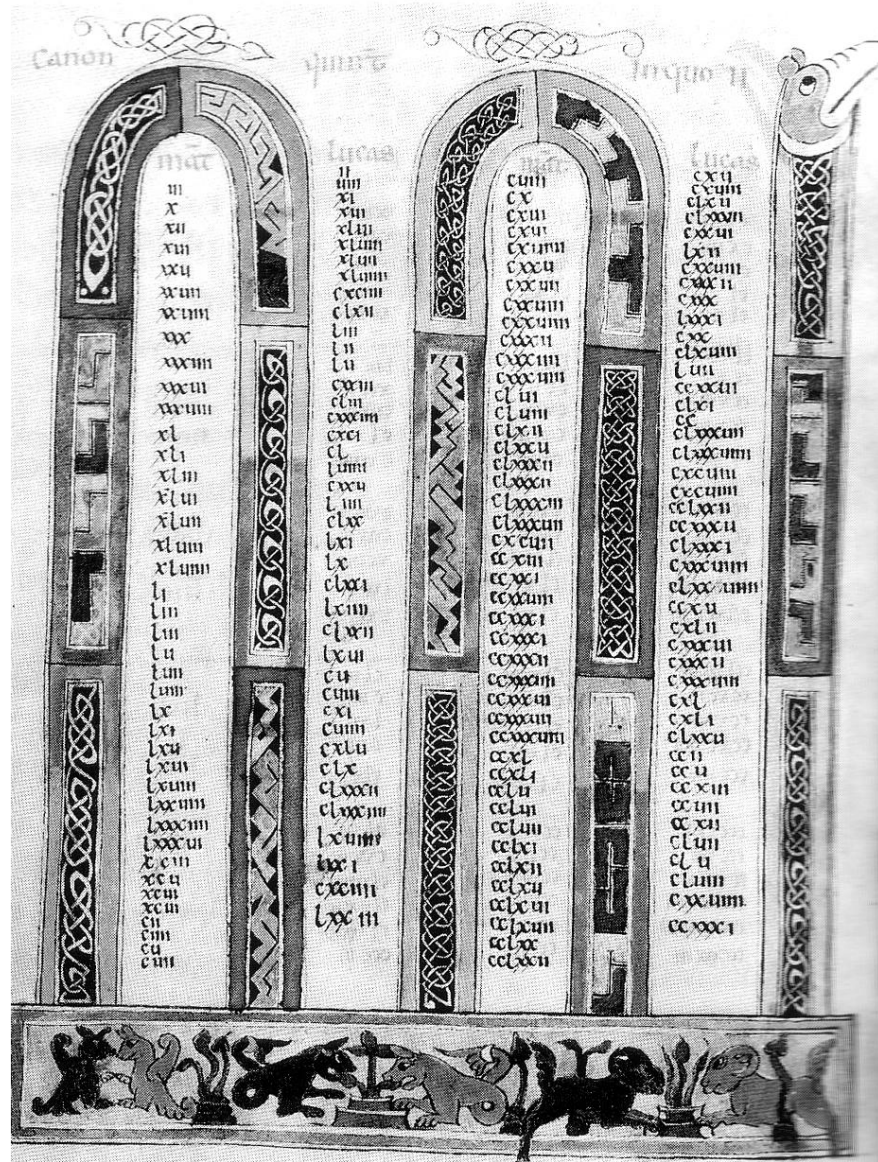 Canon
quint
in quo ii
mat
iii
x
xii
xiii
xxu
xxuii
xxuiiii
xxx
xxxiiii
xxxui
xxxuiii
xl
xli
xliii
xlui
xluii
xluiii
xluiiii
li
liii
liii
lu
luii
luiii
lx
lxi
lxu
lxui
lxuiii
lxxuiiii
lxxxiiii
lxxxui
xciii
xcu
xcui
xcuii
cii
ciiii
cu
cuiii
lucas
ii
uiii
xi
xiii
xluii
xluiiii
xluii
xluiiii
cxciiii
clxii
liii
lii
lu
cxxiii
cliii
cxxxiiii
cxci
cl
luiiii
cxxu
liiii
clxx
lxi
lx
clxxi
lxiiii
clxxii
lxui
cu
cuiii
cxi
cuiiii
cxlu
clx
clxxxii
clxxxiiii
lxuiiii
lxxi
cxciiii
lxxiii
mat
cuiii
cx
cxiii
cxui
cxuiiii
cxxu
cxxuii
cxxuiii
cxxuiiii
cxxxii
cxxxiiii
cxxxuiii
clui
cluiii
clxii
clxxu
clxxxii
clxxxii
clxxxiiii
clxxxuii
cxcuii
ccxiii
ccxxi
ccxxuiii
ccxxxi
ccxxxi
ccxxxii
ccxxxiiii
ccxxxui
ccxxxuii
ccxxxuiii
ccxl
ccxli
cclu
cclui
ccluii
cclxi
cclxii
cclxu
cclxui
cclxuii
cclxx
cclxxii
lucas
cxu
cxuiii
clxii
clxxuii
cxxui
lxii
cxxuiii
cxxxii
cxxx
lxxxi
cxx
clxuiii
luii
ccxxui
clxi
cc
clxxxuiii
clxxxuiiii
cxcuiii
cxcuiiii
cclxxii
ccxxxu
clxxxi
cxxuiiii
clxxuiiii
ccxu
cxlii
cxxxui
cxxxu
cxxxuiii
cxl
cxli
clxxu
ccii
ccu
ccxiii
ccuii
ccxii
cluii
clu
cluiii
cxxuiiii
ccxxxi